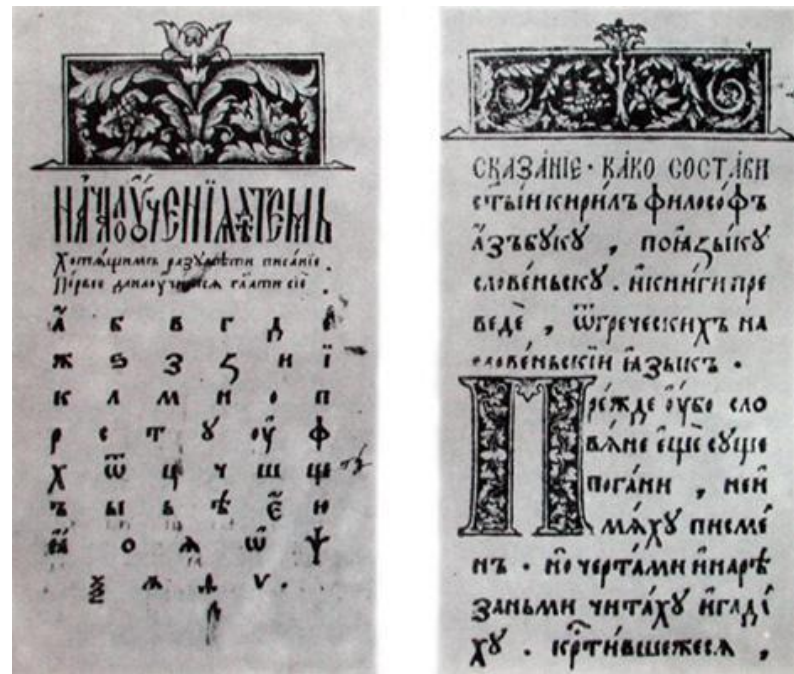 НАЧА́ЛО ОУ҆ЧЕНЇѦ ДѢ́ТЕМЪ
Хотѧ́щимъ разꙋмѣ́ти писа́нїе .
Пе́рвое
а҆ б в г д е
ж ѕ з ꙁ и ї
к л м н о п
р с т ꙋ оу҆ ф
х ѿ ц ч ш щ
ъ ы ь ѣ є҆ ю
ꙗ҆ о ѧ ѡ҆ ѱ
ѯ ѧ ѵ .
СКАЗА́НЇЕ · КА́КО СОСТА́ВИ
ст҃ы́и кири́лъ филосо́фъ
а҆́збꙋкꙋ , поꙗ҆зы́кꙋ
слове́ньскꙋ . и҆кни́ги пре
ведѐ , ѿгре́ческихъ на
слове́ньскїи ꙗ҆зы́къ .
Пре́жде оу҆́бо сло
вѧ́не е҆щѐ сꙋ́ще
пога́ни , неи
мѧ́хꙋ писме́
нъ . но̀ черта́ми и҆нарѣ
заньми чита́хꙋ и҆гада́
хꙋ . кр҃ти́вшежесѧ ,